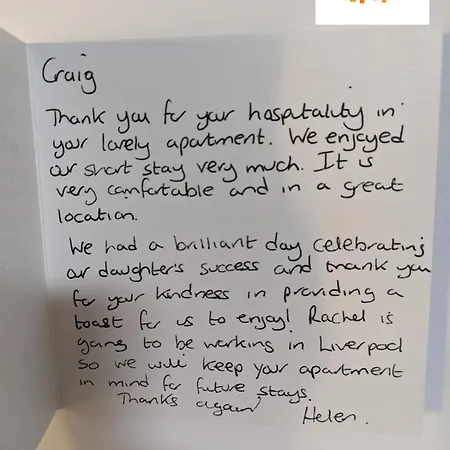 Craig
Thank you for your hospitality in
your lovely apartment. We enjoyed
our short stay very much. It is
very comfortable and in a great
location.
We had a brilliant day celebrating
our daughter's success and thank you
for your kindness in providing a
toast for us to enjoy! Rachel is
going to be working in Liverpool
so we will keep your apartment
in mind for future stays.
Thanks again
Helen.